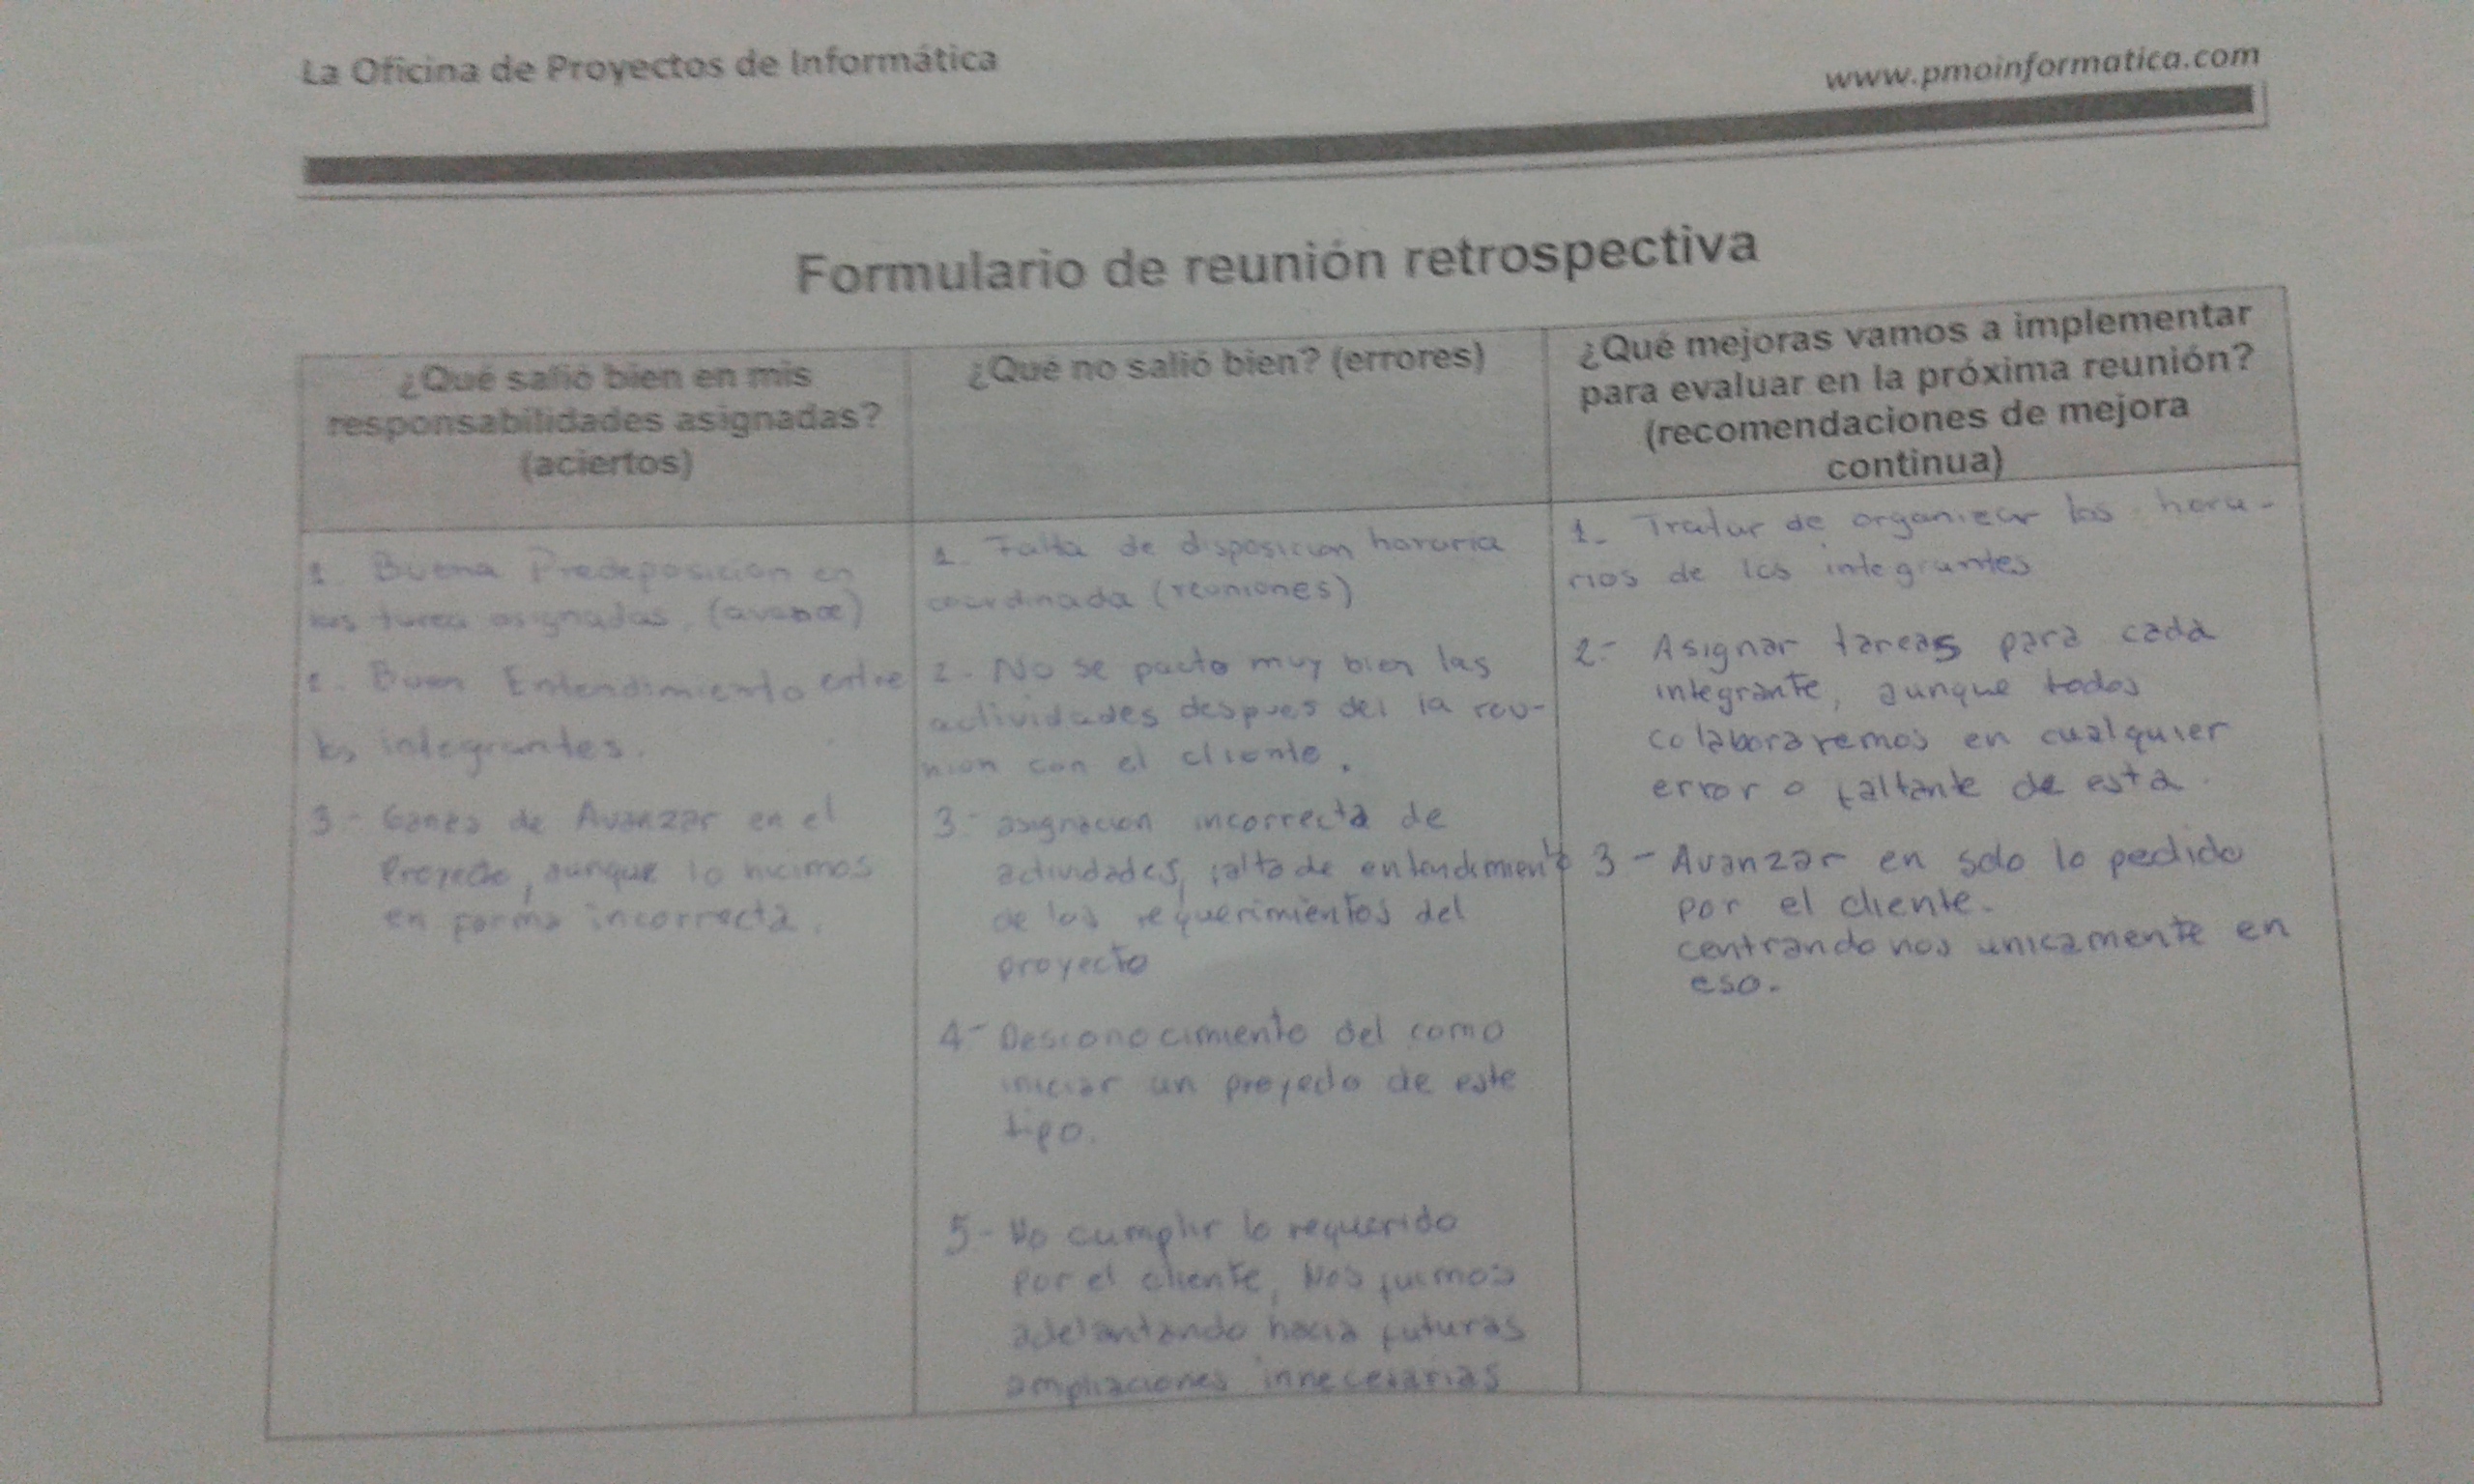 La Oficina de Proyectos de Informática
www.pmoinformatica.com
Formulario de reunión retrospectiva
¿Qué salió bien en mis
responsabilidades asignadas?
(aciertos)
¿Qué no salió bien? (errores)
¿Qué mejoras vamos a implementar
para evaluar en la próxima reunión?
(recomendaciones de mejora
continua)
1. Buena Predeposicion en
las tarea asignadas, (avance)
2. Buen Entendimiento entre
los integrantes.
3- Ganas de Avanzar en el
Proyecto, aunque lo hicimos
en forma incorrecta.
1. Falta de disposicion horaria
coordinada (reuniones)
2.- No se pacto muy bien las
actividades despues del la reu-
nion con el cliente.
3- asignacion incorrecta de
actividades, falta de entendimiento
de los requerimientos del
proyecto
4- Desconocimiento del como
iniciar un proyecto de este
tipo.
5- No cumplir lo requerido
por el cliente, Nos fuimos
adelantando hacia futuras
ampliaciones innecesarias
1. Tratar de organizar los hora-
rios de los integrantes
2.- Asignar tareas para cada
integrante, aunque todos
colaboraremos en cualquier
error o faltante de esta.
3- Avanzar en solo lo pedido
por el cliente.
centrando nos unicamente en
eso.